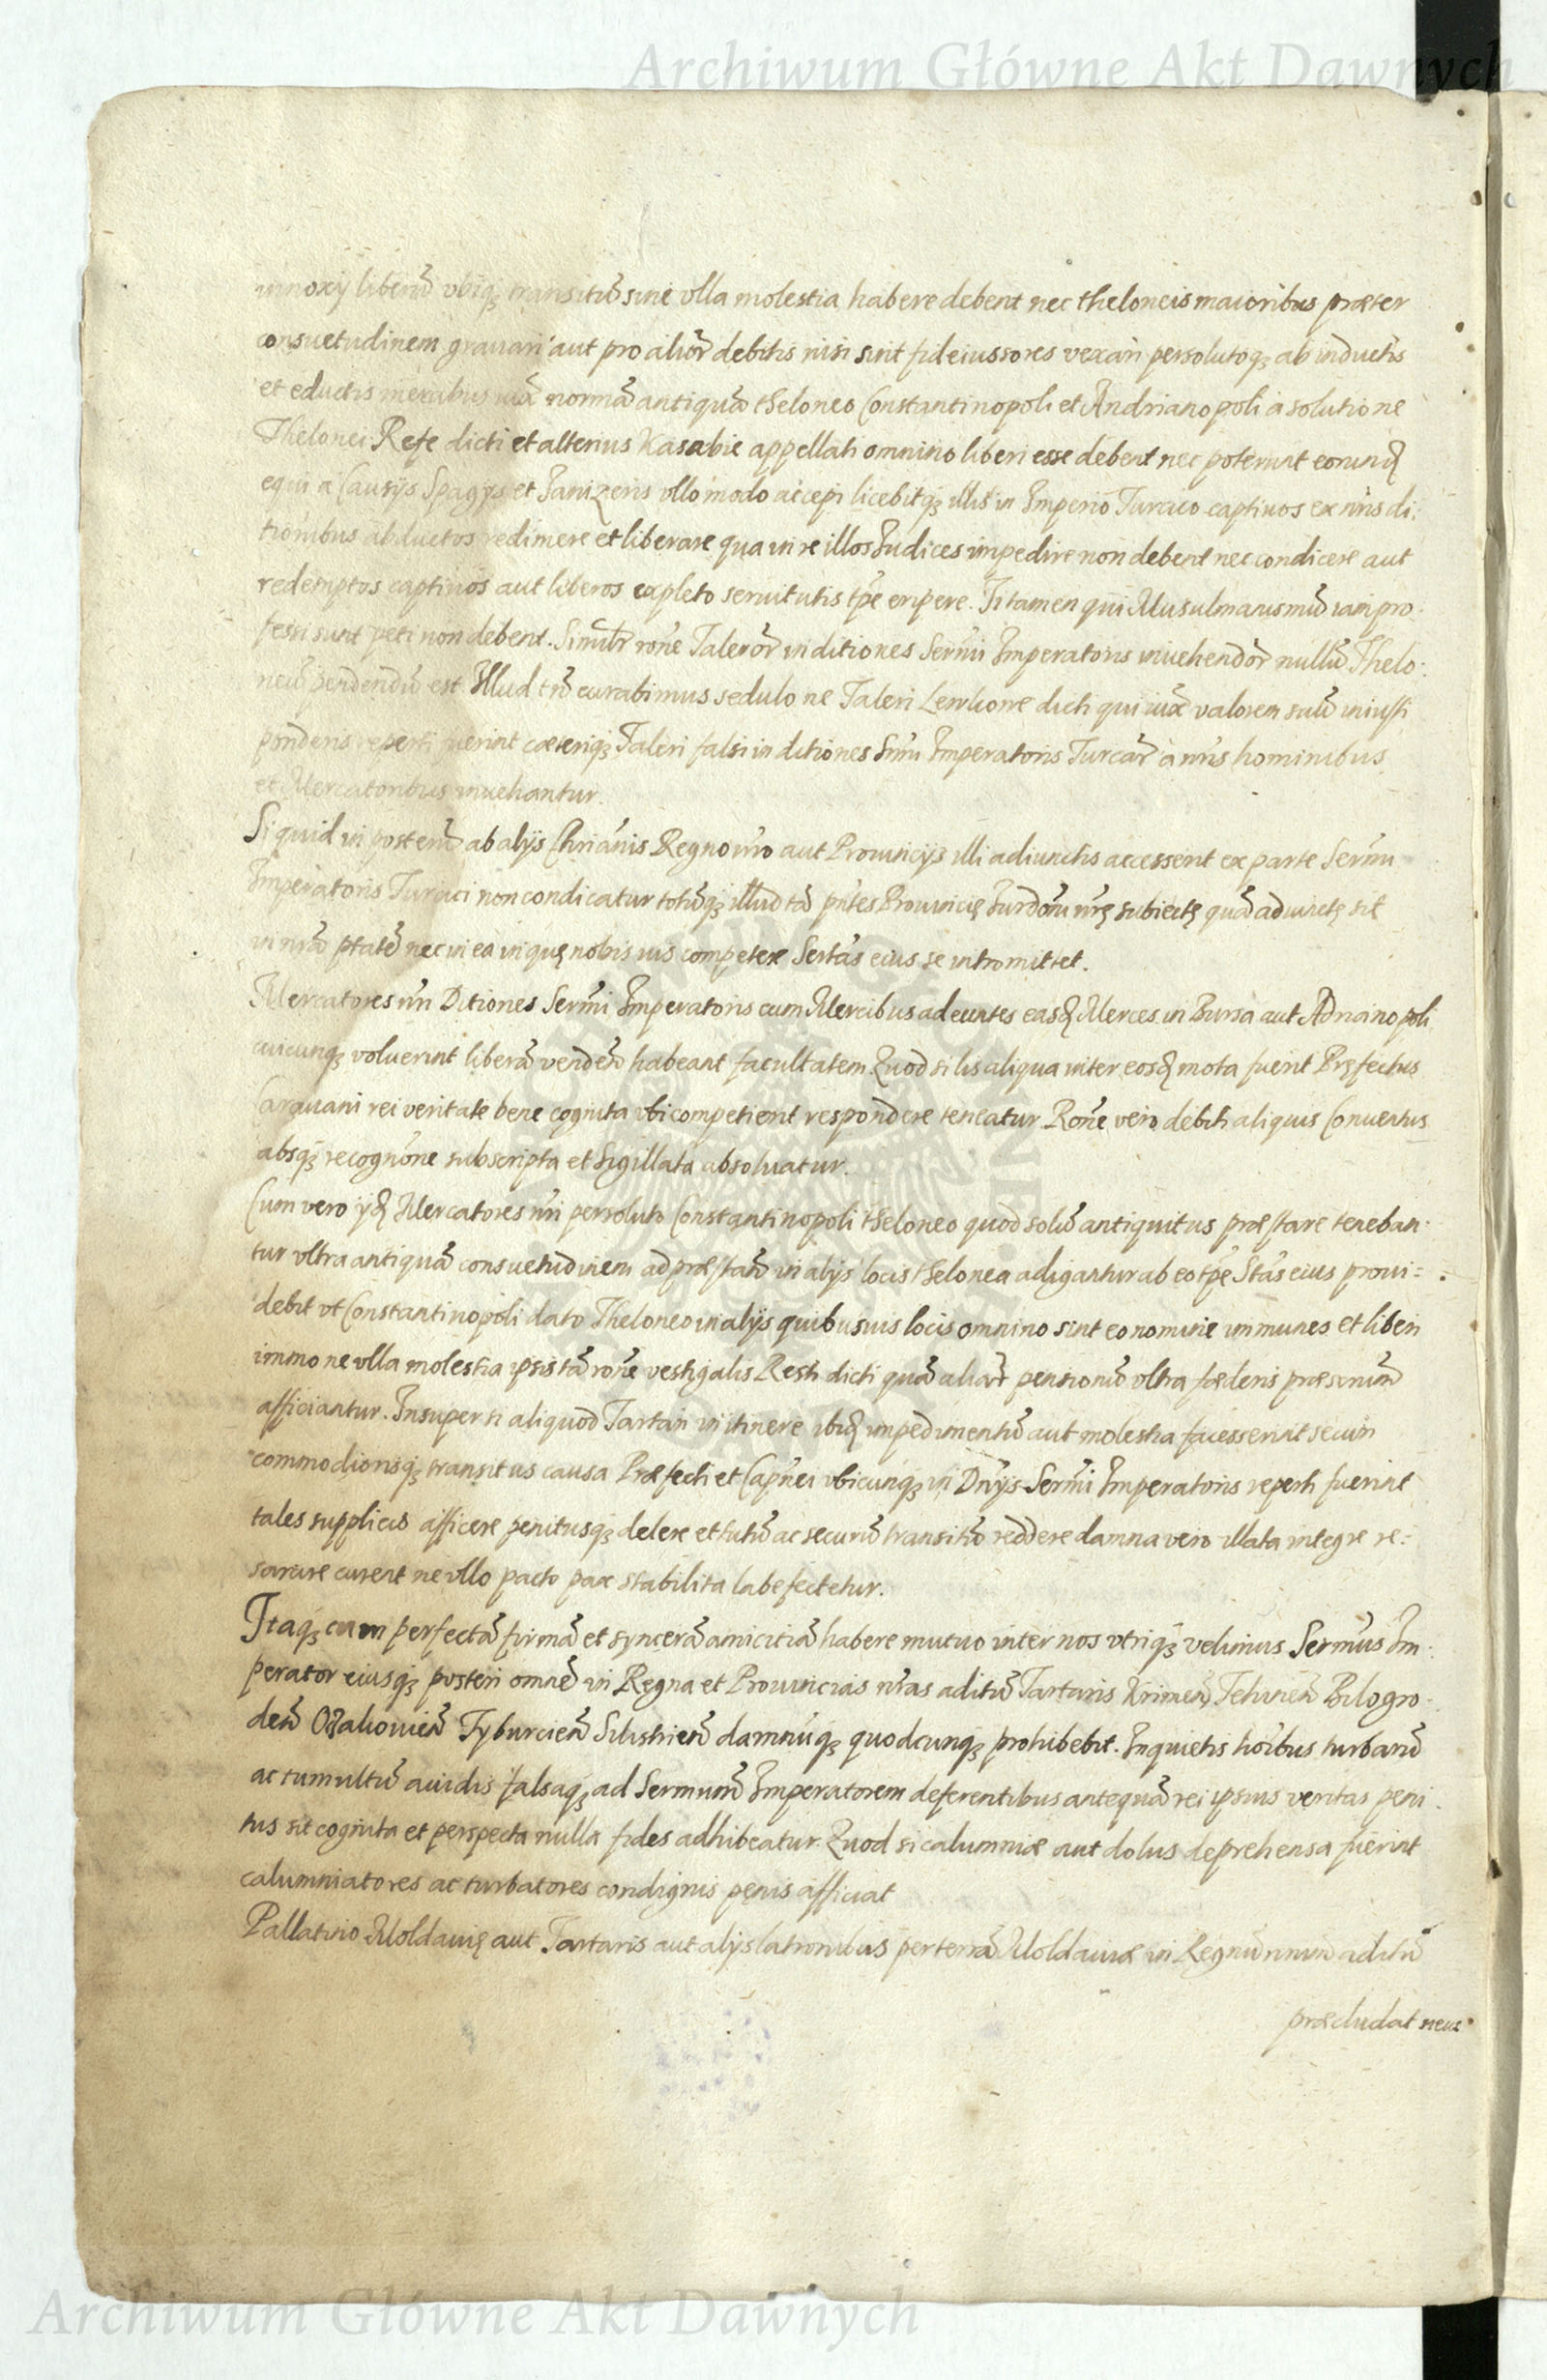 Archiwum Główne Akt Dawnych
innoxij liberũ vbiq; transitũ sine vlla molestia habere debent nec theloneis maioribus præter
consuetudinem grauari aut pro alior̃ debitis nisi sint fideiussores vexari persolutoq; ab inductis
et eductis mercibus iuxã normã antiquã theloneo Constantinopoli et Andrianopoli a solutione
Thelonei Refe dicti et alterius Kasabie appellati omnino liberi esse debent nec poterunt eorund
equi a Causijs Spagys et Janizeris vllo modo accepi licebitq; illis in Imperio Turcico captiuos ex nr̃is di:
tionibus abductos redimere et liberare qua in re illos Iudices impedire non debent nec condicere aut
redemptos captiuos aut liberos expleto seruitutis tp̃e eripere. Ii tamen qui Musulmanismũ iam pro
fessi sunt peti non debent. Simil̃r rõne Taleror̃ in ditiones Ser̃mi Imperatoris inuehendor̃ nullũ Thelo:
neũ pendendũ est Illud tñ curabimus sedulo ne Taleri Lewkone dicti qui iuxã valorem suũ iniusti
ponderis reperti fuerint cæteriq; Taleri falsi in ditiones Smi Imperatoris Turcar̃ a nr̃is hominibus
et Mercatoribus inuehantur.
Si quid in posterũ ab alijs Chriãnis Regno nr̃o aut Prouincijs illi adiunctis accesserit ex parte Ser̃mi
Imperatoris Turcici non condicatur totũq; illud tã pñtes Prouincię Iurdõni nr̃ę subiectę quã adiunctę sit
in nr̃a ptatẽ nec in ea in quę nobis ius competere Sertãs eius se intromittet.
Mercatores nr̃i Ditiones Ser̃mi Imperatoris cum Mercibus adeuntes easd Merces in Bursa aut Adrianopoli
cuicunq; voluerint liberã vendẽn habeant facultatem. Quod si lis aliqua inter eosd mota fuerit Pręfectus
Carauani rei veritate bene cognita vbi competierit respondere teneatur. Rõne vero debiti aliquis Conuentus
absq; recognõne subscripta et Sigillata absoluatur.
Cum vero ijd Mercatores nr̃i persoluto Constantinopoli theloneo quod solũ antiquitus præstare teneban:
tur vltra antiquã consuetudinem ad præstañ in alijs locis thelonea adigantur ab eo tp̃e Stãs eius proui=
debit vt Constantinopoli dato Theloneo in alijs quibusuis locis omnino sint eo nomine immunes et liberi
immo ne vlla molestia ipsis tã rõne vestigalis Resti dicti quã aliar̃ pensionũ vltra fœderis præscriptũ
afficiantur. Insuper si aliquod Tartari in itinere ibid impedimentũ aut molestia facesserint secun
commodiorisq; transitus causa Præfecti et Capñei vbicunq; in Dnijs Ser̃mi Imperatoris reperti fuerint
tales supplicio afficere penitusq; delere et tutũ ac securũ transitũ reddere damna vero illata integre re:
sarcire curent ne vllo pacto pax stabilita labefectetur.
Itaq; cum perfectã firmã et syncerã amicitiã habere mutuo inter nos vtriq; velimus Ser̃mus Im:
perator eiusq; posteri omnẽ in Regna et Prouincias nr̃as aditũ Tartaris Krimeñ, Tehinieñ Bilogro:
deñ Oczakouieñ Tyhurcieñ Silistrieñ damnũq; quodcunq; prohibebit. Inquietis hoĩbus turbarũ
ac tumultũ auidis falsaq; ad Sermum Imperatorem deferentibus antequã rei ipsius veritas peni
tus sit cognita et perspecta nulla fides adhibeatur. Quod si calumniæ aut dolus deprehensa fuerint
calumniatores ac turbatores condignis pęnis afficiat
Pallatino Moldauię aut Tartaris aut alijs latronibus per terrã Moldauiæ in Regnũ nrũm aditũ
præcludat neue
Archiwum Główne Akt Dawnych